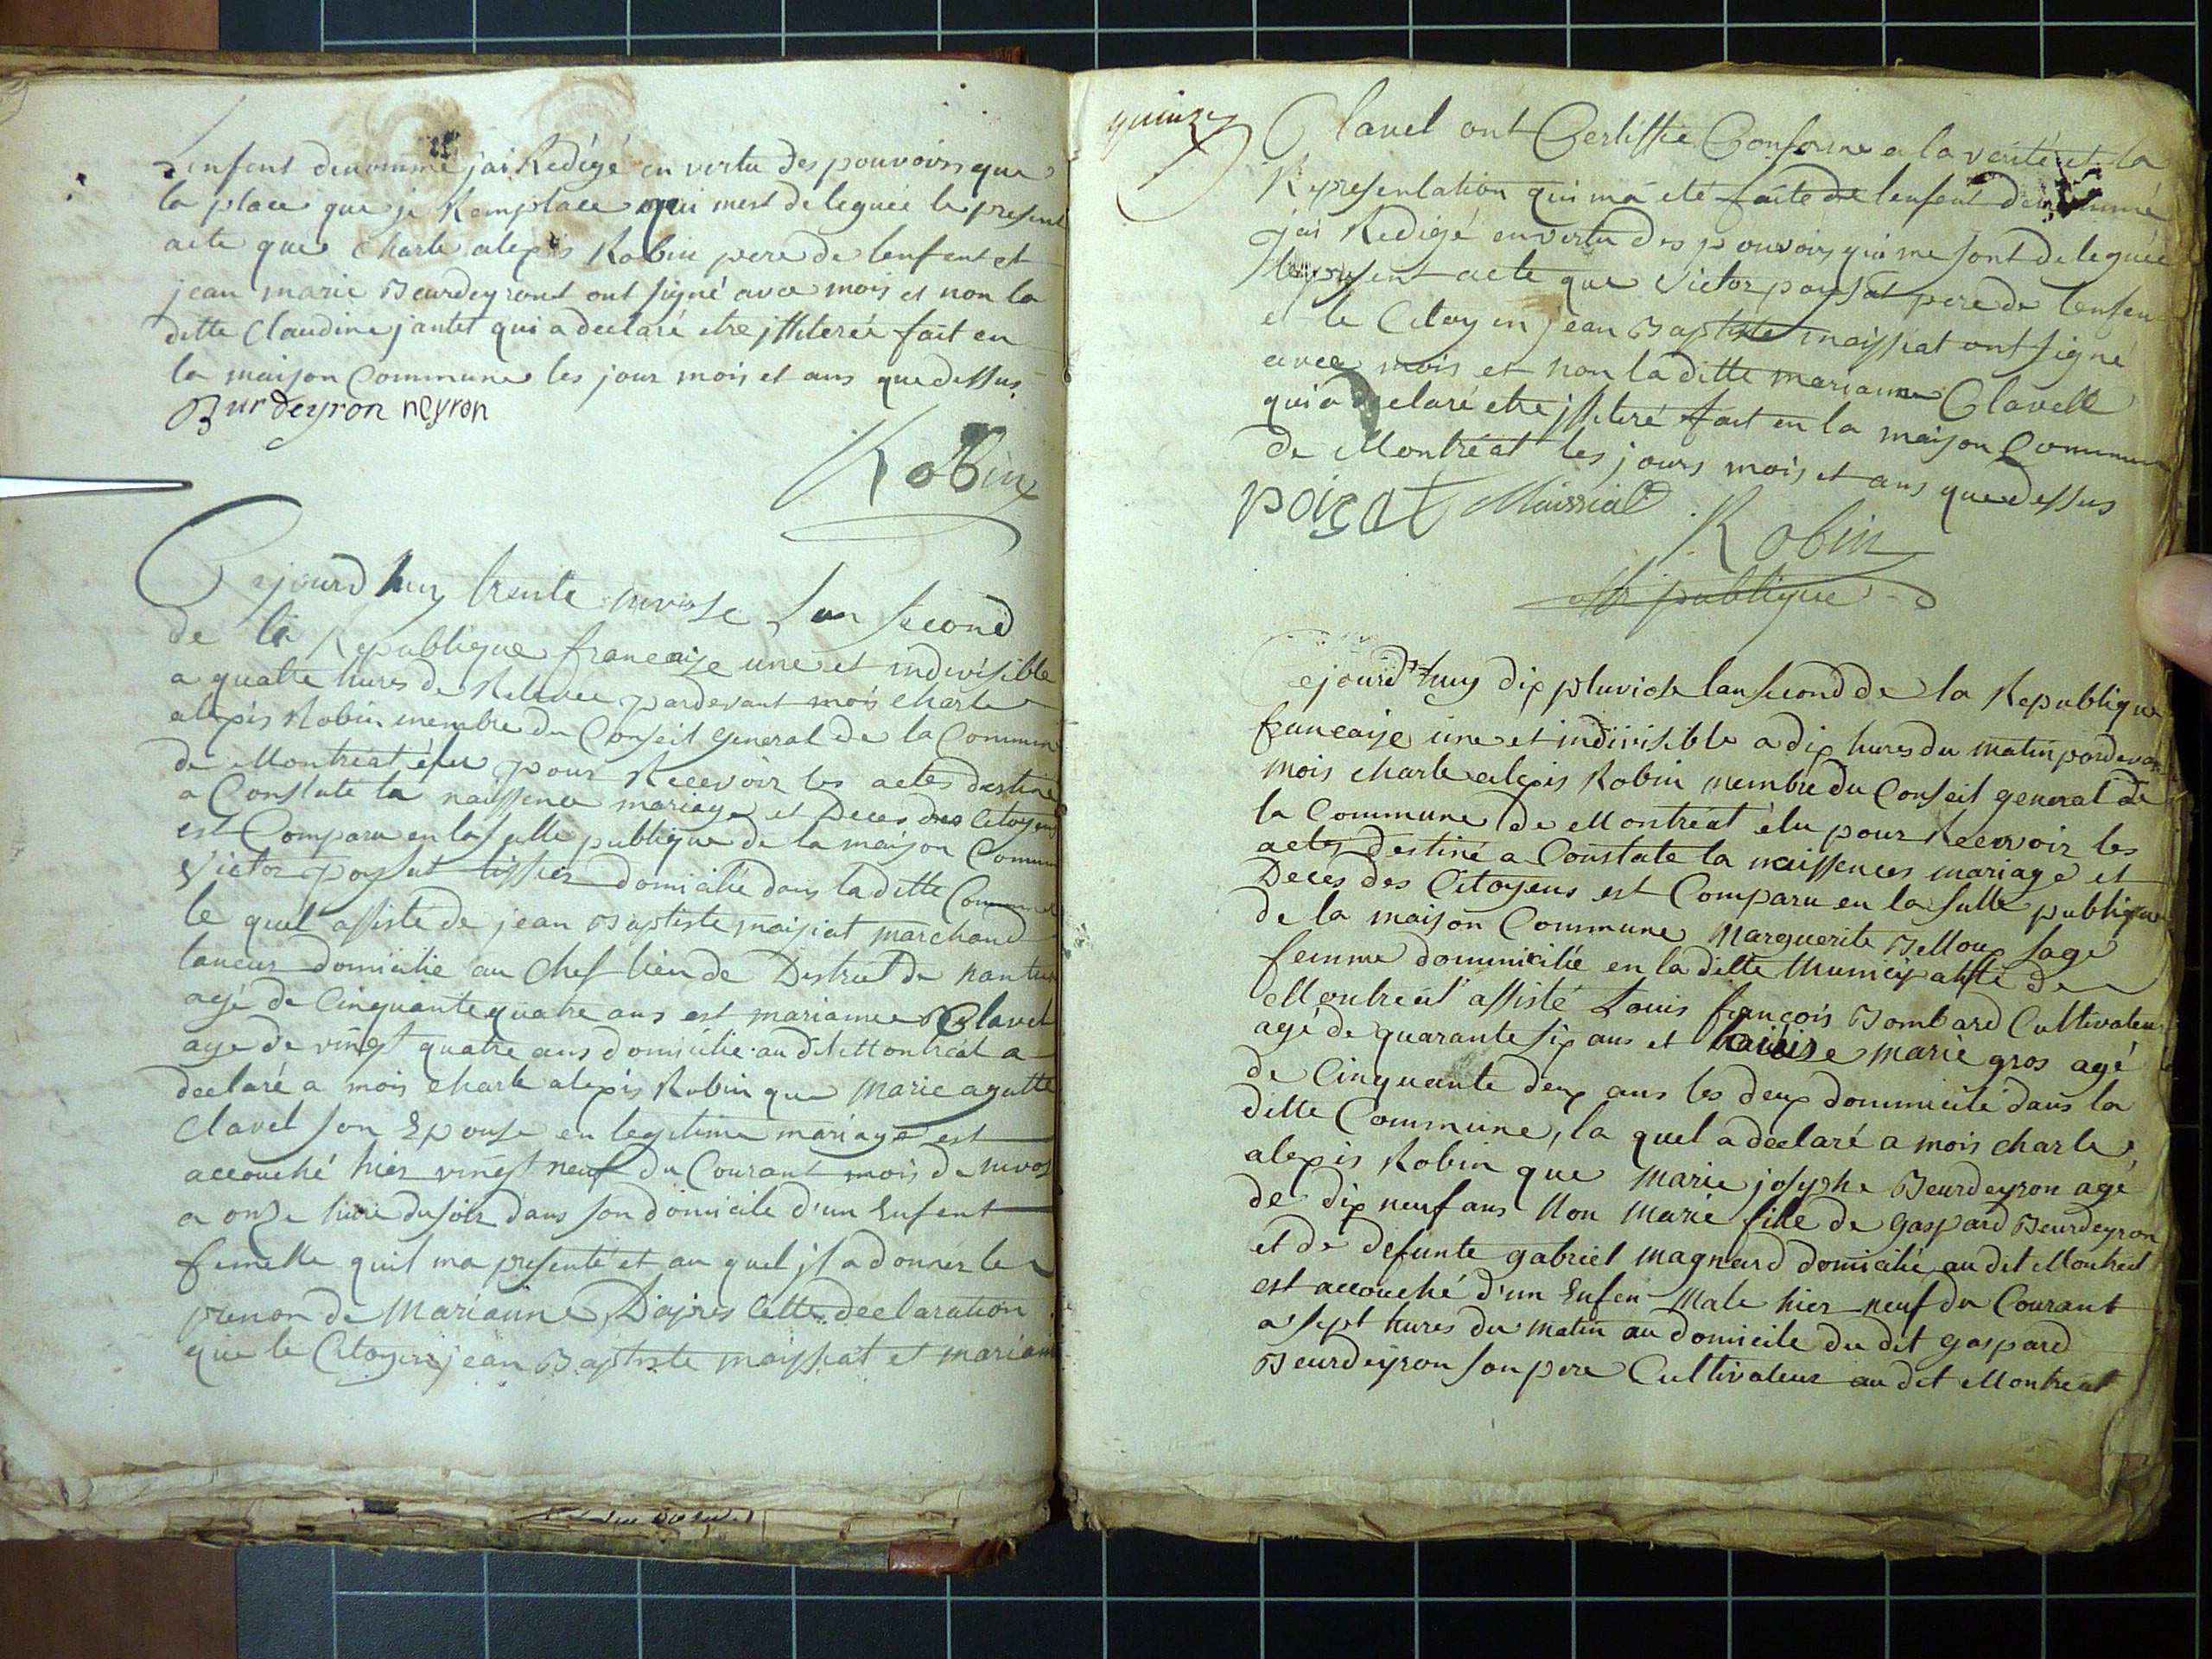 Lenfent denommé jai Redigé en vertu des pouvoirs que
la place que je Remplace qui mest deleguée le present
acte que Charle alexis Robin pere de lenfent et
jean marie Beurdeyront ont signé avec mois et non la
ditte Claudine jantet qui a declaré etre jlliterée fait en
la maison Commune les jour mois et ans que dessus
Burdeyron neyron
Robin
Cejourd huy trente nivose Lan second
de la Republique francaise une et indivisible
a quatre hures de Relevee pardevant mois charle
alexis Robin membre du Conseil general de la Commun
de Montréat élu pour Recevoir les actes destiné
a Constate la naissence mariage et Deces des Citoyens
est Comparu en la salle publique de la maison Comun
Victor paysat tissier domicilié dans la ditte Commune
le quel assisté de jean Baptiste maissiat marchand
taneur domicilié au Chef lieu de Distrut de nantua
agé de Cinquante quatre ans est mariamne Clavel
age de vingt quatre ans domicilié au dit Montréal a
declaré a mois charle alexis Robin que Marie agatte
Clavel son Epouse en legitime mariage est
accouché hier vingt neuf du Courant mois de nivos
a onze hure du soir dans son domicile d'un Enfent
femelle quil ma presenté et au quel jl a donner le
prenon de Marianne, D'apres cette declaration
que le Citoyen jean Baptiste maissiat et mariann
quinze
Clavel ont Certiffié Conforme a la verité et la
Representation qui ma eté faite de lenfent denommé
jai Redigé en vertu des pouvoirs qui me sont deleguée
le present acte que Victor paysat pere de lenfen
et le Citoyen jean Baptiste maissiat ont signé
avec mois et non la ditte mariamne Clavell
qui a declaré etre jlliteré fait en la maison Commune
de Montréat les jours mois et ans que dessus
paisat Maissiat
Robin
off publique
Cejourd'huy dix pluviose lan second de la Republique
francaise une et indivisible a dix hures du matin pardevan
mois charle alexis Robin membre du Conseil general de
la Commune de Montréat élu pour Recevoir les
actes destiné a Constate la naissences mariage et
Deces des Citoyens est Comparu en la salle publique
de la maison Commune Marguerite Belloux sage
femme dommicilié en la ditte Municipalité de
Montréat assisté Louis françois Bombard Cultivateur
agé de quarante six ans et marie gros agé
de Cinquante deux ans les deux dommicilé dans la
ditte Commune, la quel a declaré a mois charle
alexis Robin que Marie josephe Beurdeyron agé
de dix neuf ans Non Marié fille de Gaspard Beurdeyron
et de defunte gabriel magnard domicilié au dit Montréat
est accouché d'un Enfen Male hier neuf du Courant
a sept hures du matin au domicile du dit gaspard
Beurdeyron son pere Cultivateur au dit Montréat